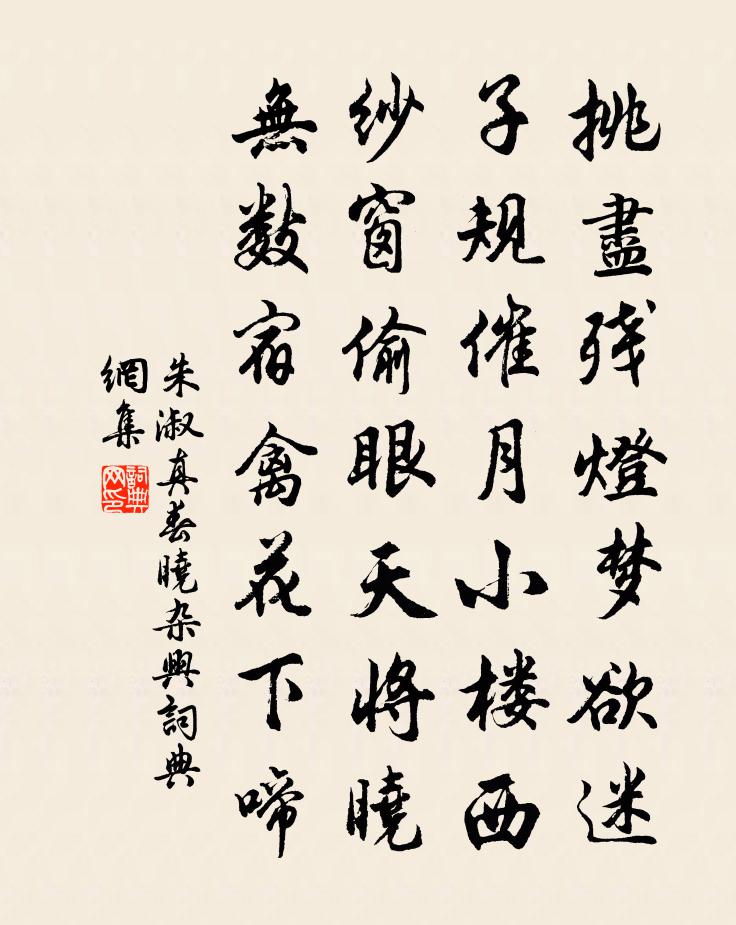 挑盡残燈梦欲迷
子规催月小楼西
纱窗偷眼天将曉
無数宿禽花下啼
朱淑真春曉杂興詞典
網集
詞典
网印